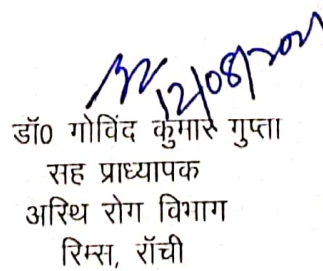 12/08/2021
डॉ0 गोविंद कुमार गुप्ता
सह प्राध्यापक
अस्थि रोग विभाग
रिम्स, रॉची